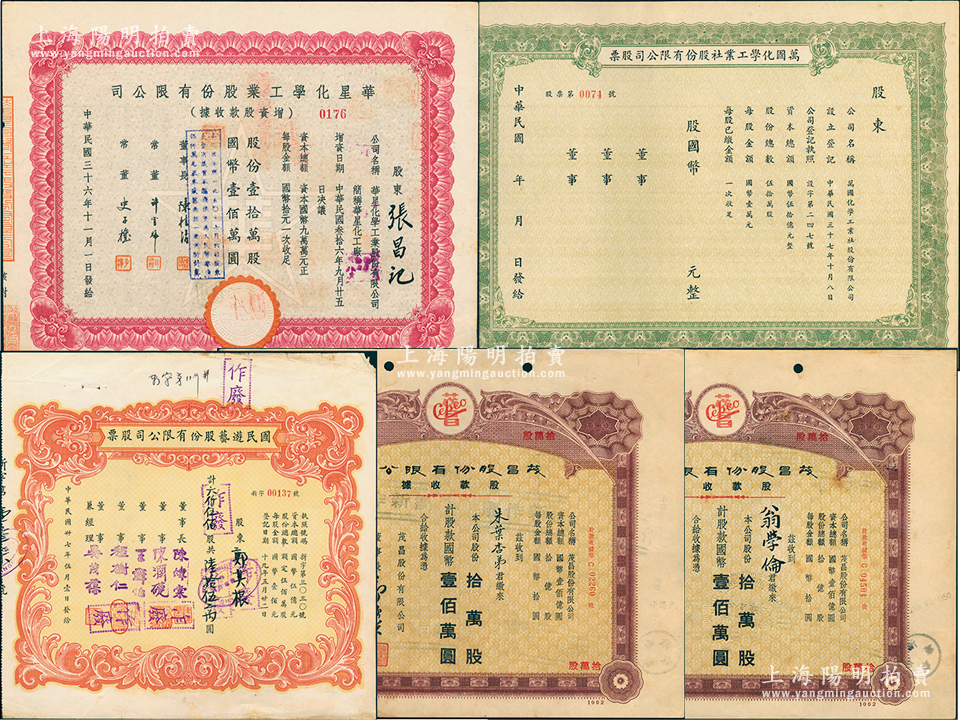 上海陽明拍賣
www.yangmingauction.com
華星化學工業股份有限公司
(增資股款收據)
0176
股東 張昌記
公司名稱 華星化學工業股份有限公司
簡稱華星化工廠
增資日期 中華民國叁拾六年九月廿五
日決議
資本總額 資本國幣九萬萬元正
每股金額 國幣拾元一次收足
股份壹拾萬股
國幣壹佰萬圓
董事長
常董
常董
中華民國三十六年十一月一日發給
萬國化學工業社股份有限公司股票
股票第 0074 號
股東
公司名稱 萬國化學工業社股份有限公司
設立登記 中華民國三十七年十月八日
公司登記執照 設字第二四七號
資本總額 國幣伍拾億元整
股份總數 伍拾萬股
每股金額 國幣壹萬元
每股已繳金額 一次收足
股國幣 元整
董事
董事
董事
中華民國 年 月 日發給
上海陽明拍賣
www.yangmingauction.com
作廢
國民遊藝股份有限公司股票
新字 00137 號
執照號數 新字第二〇三〇號
資本總額 國幣伍億元
股份總額 額定伍佰萬股
每股金額 國幣壹佰元
登記日期 十九年五月廿二日
股東
計
股共
圓
作廢
董事長
董事
董事
董事
董事
兼經理
作廢
中華民國卅七年伍月壹日發給
拾萬股
茂昌股份有限公
股款收據
股款收據 C 02260 號
公司名稱 茂昌股份有限公司
資本總額 國幣壹佰億圓
股份總額 拾億股
每股金額 國幣拾圓
茲收到
朱葉杏弟 君繳來
本公司股份 拾萬股
計股款國幣 壹佰萬圓
合給收據為憑
茂昌股份有限公司
董事長
拾萬股
1002
拾萬股
茂昌股份有限公
股款收據
公司名稱 茂昌股份有限公司
資本總額 國幣壹佰億圓
股份總額 拾億股
每股金額 國幣拾圓
茲收到
翁學倫 君繳來
本公司股份 拾萬股
計股款國幣 壹佰萬圓
合給收據為憑
拾萬股
1002
上海陽明拍賣
www.yangmingauction.com